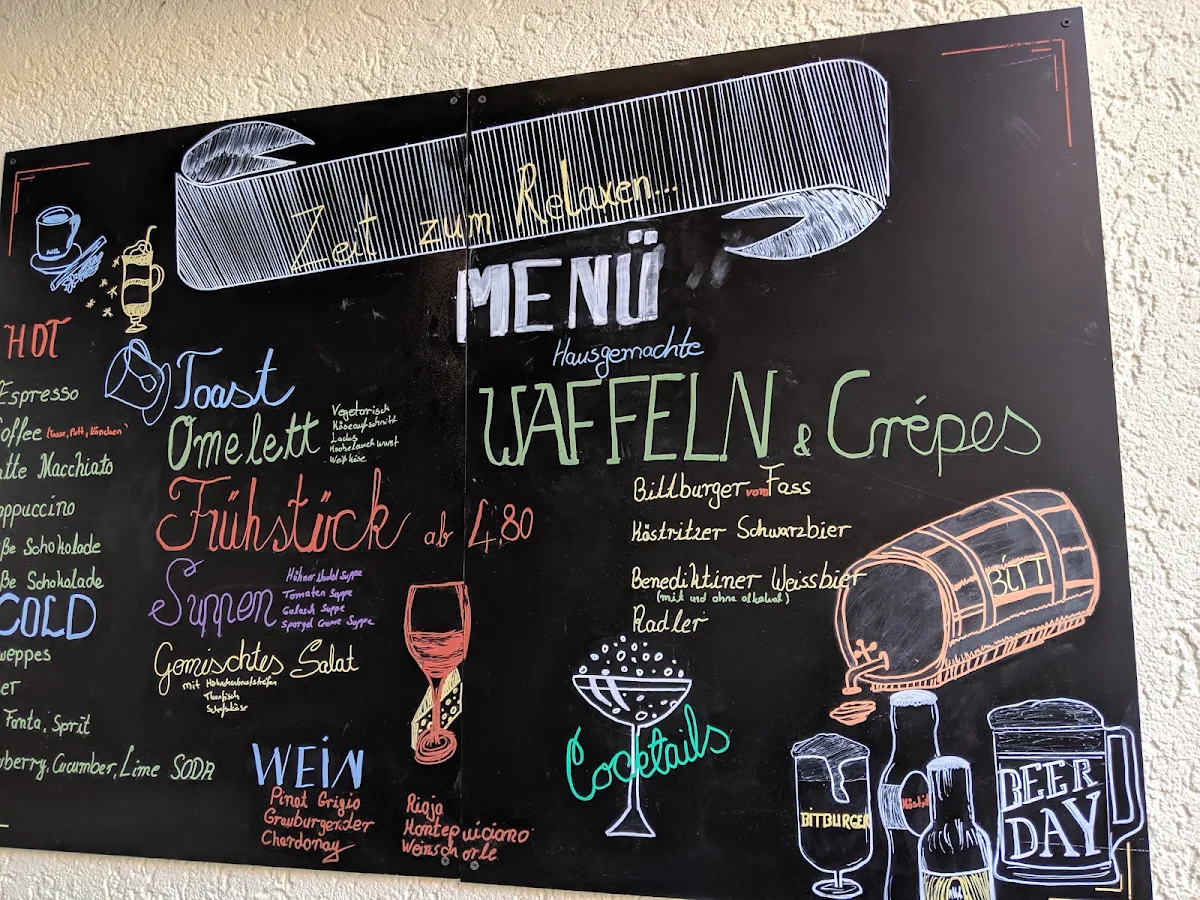 Zeit zum Relaxen...
MENÜ
HOT
Espresso
offee (Tasse, Pott, Känchen)
atte Macchiato
appuccino
ße Schokolade
ße Schokolade
COLD
weppes
er
Fanta, Sprit
wberry, Cucumber, Lime SODA
Toast
Omelett
Vegetarisch
Käseaufschnitt
Lachs
Knoblauch wurst
Weißkäse
Frühstück ab 4,80
Suppen
Hühner Nudel Suppe
Tomaten Suppe
Gulasch Suppe
Spargel Creme Suppe
Gemischtes Salat
mit Hähnchenbrutstreifen
Thunfisch
Schafskäse
WEIN
Pinot Grigio
Grauburgender
Chardonay
Rioja
Montepulciano
Weinschorle
Hausgemachte
WAFFELN & Crépes
Bittburger vom Fass
Köstritzer Schwarzbier
Benediktiner Weissbier
(mit und ohne alkohol)
Radler
Cocktails
BITT
BITBURGER
BEER
DAY